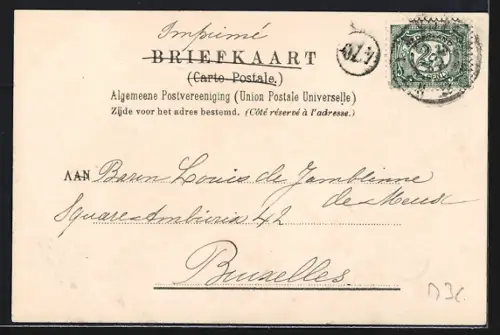 Imprimé
BRIEFKAART
(Carte Postale.)
Algemeene Postvereeniging (Union Postale Universelle)
Zijde voor het adres bestemd. (Côté réservé à l'adresse.)
470
2½
AAN Baron Louis de Jamblinne
de Meux
Square Ambiorix 42
Bruxelles.